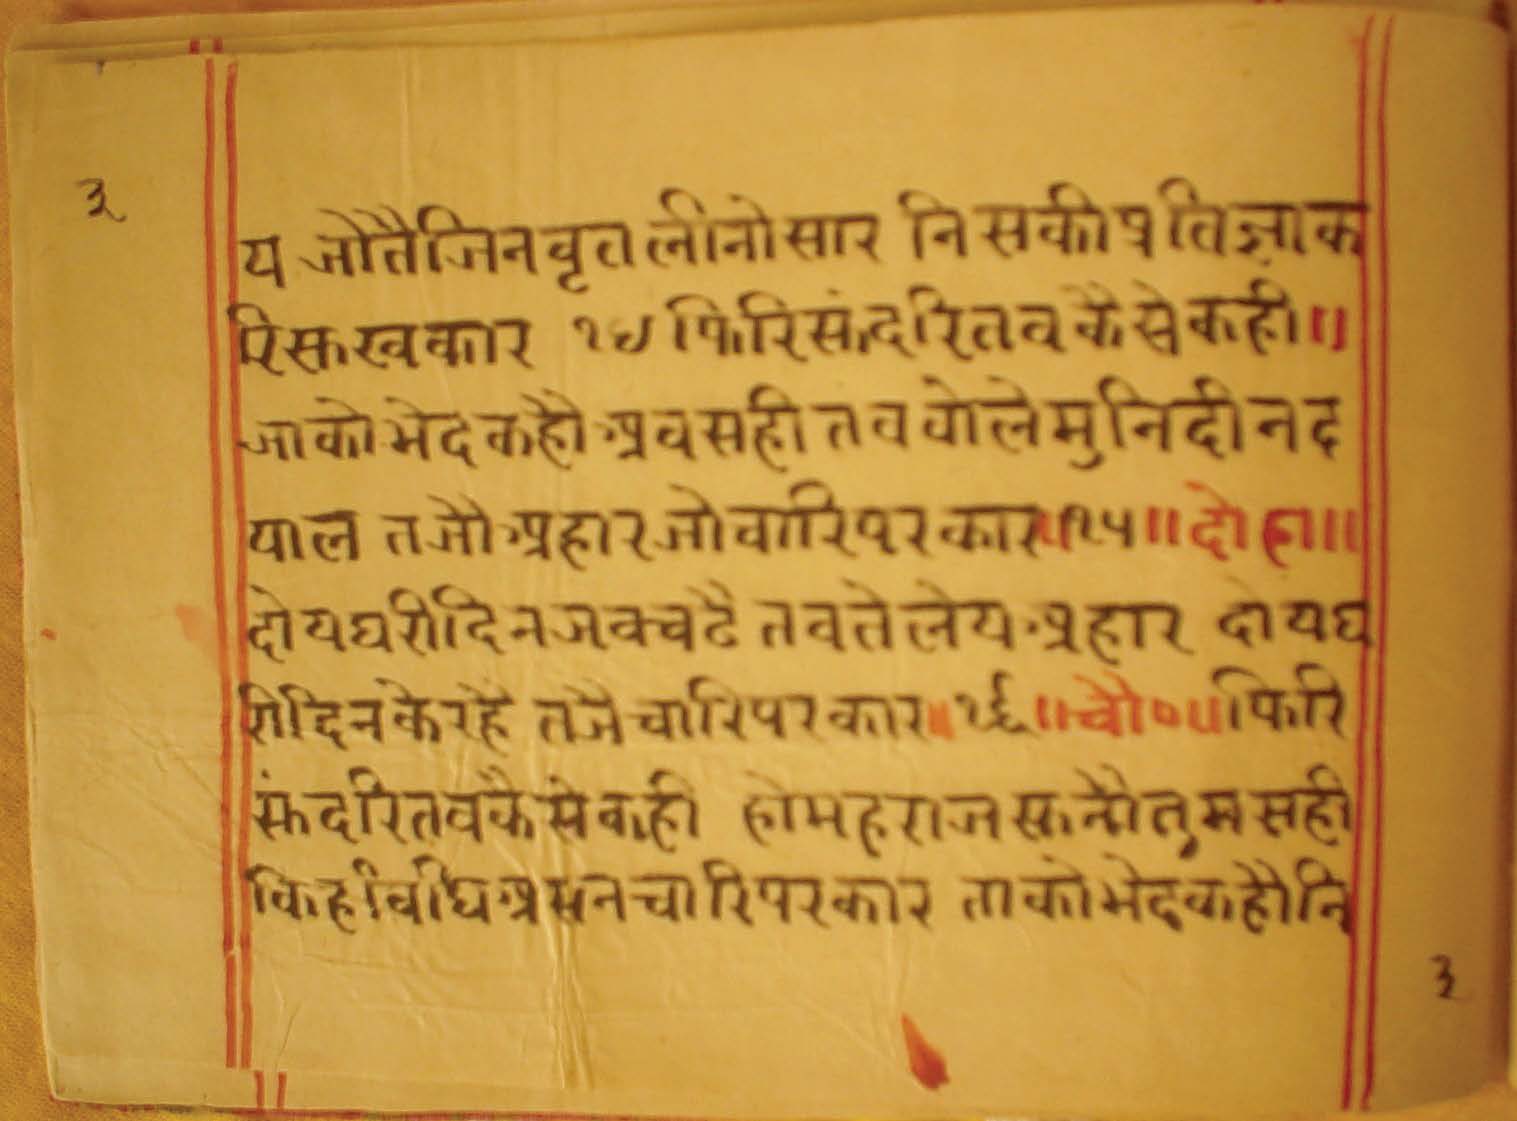 ३
य जोतैजिनवृतलीनोसार निसकीप्रतिज्ञाक
रिसुखकार १४ फिरिसुंदरितवकैसेकही॥
जाकोभेदकहौअवसही तववोलेमुनिदीनद
याल तजौअहारजोचारिपरकार॥१५॥दोहा॥
दोयघरीदिनजवचढै तवतेलेयअहार दोयघ
रीदिनकेरहै तजैचारिपरकार॥१६॥चौ०॥फिरि
सुंदरितवकैसेकही होमहराजसुनौतुमसही
किहविधिअसनचारिपरकार ताकोभेदकहौनि
३